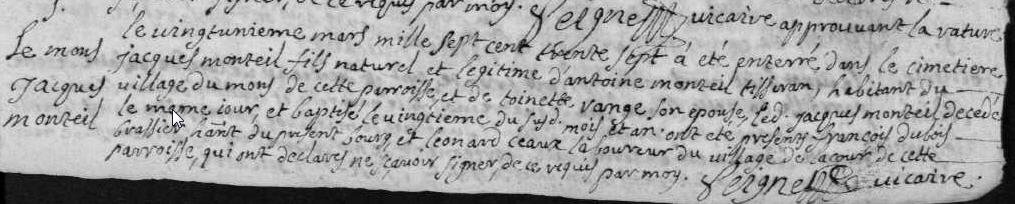 signer, de ce requis par moy. Seigne vicaire approuvant la rature
Le mons
Jacques
monteil
le vingtunieme mars mille sept cent trente sept à été enterré dans le cimetiere
jacques monteil fils naturel et legitime d'antoine monteil tisseran, habitant du
village du mons de cette parroisse, et de toinette vange son epouse, led. jacques monteil decedé
le meme jour, et baptisé le vingtieme du susd. mois et an. ont eté presents françois dubois
brassier hant du present bourg, et leonard ceaux laboureur du village de lacour de cette
parroisse, qui ont declarés ne sçavoir signer, de ce requis par moy. Seigne vicaire.